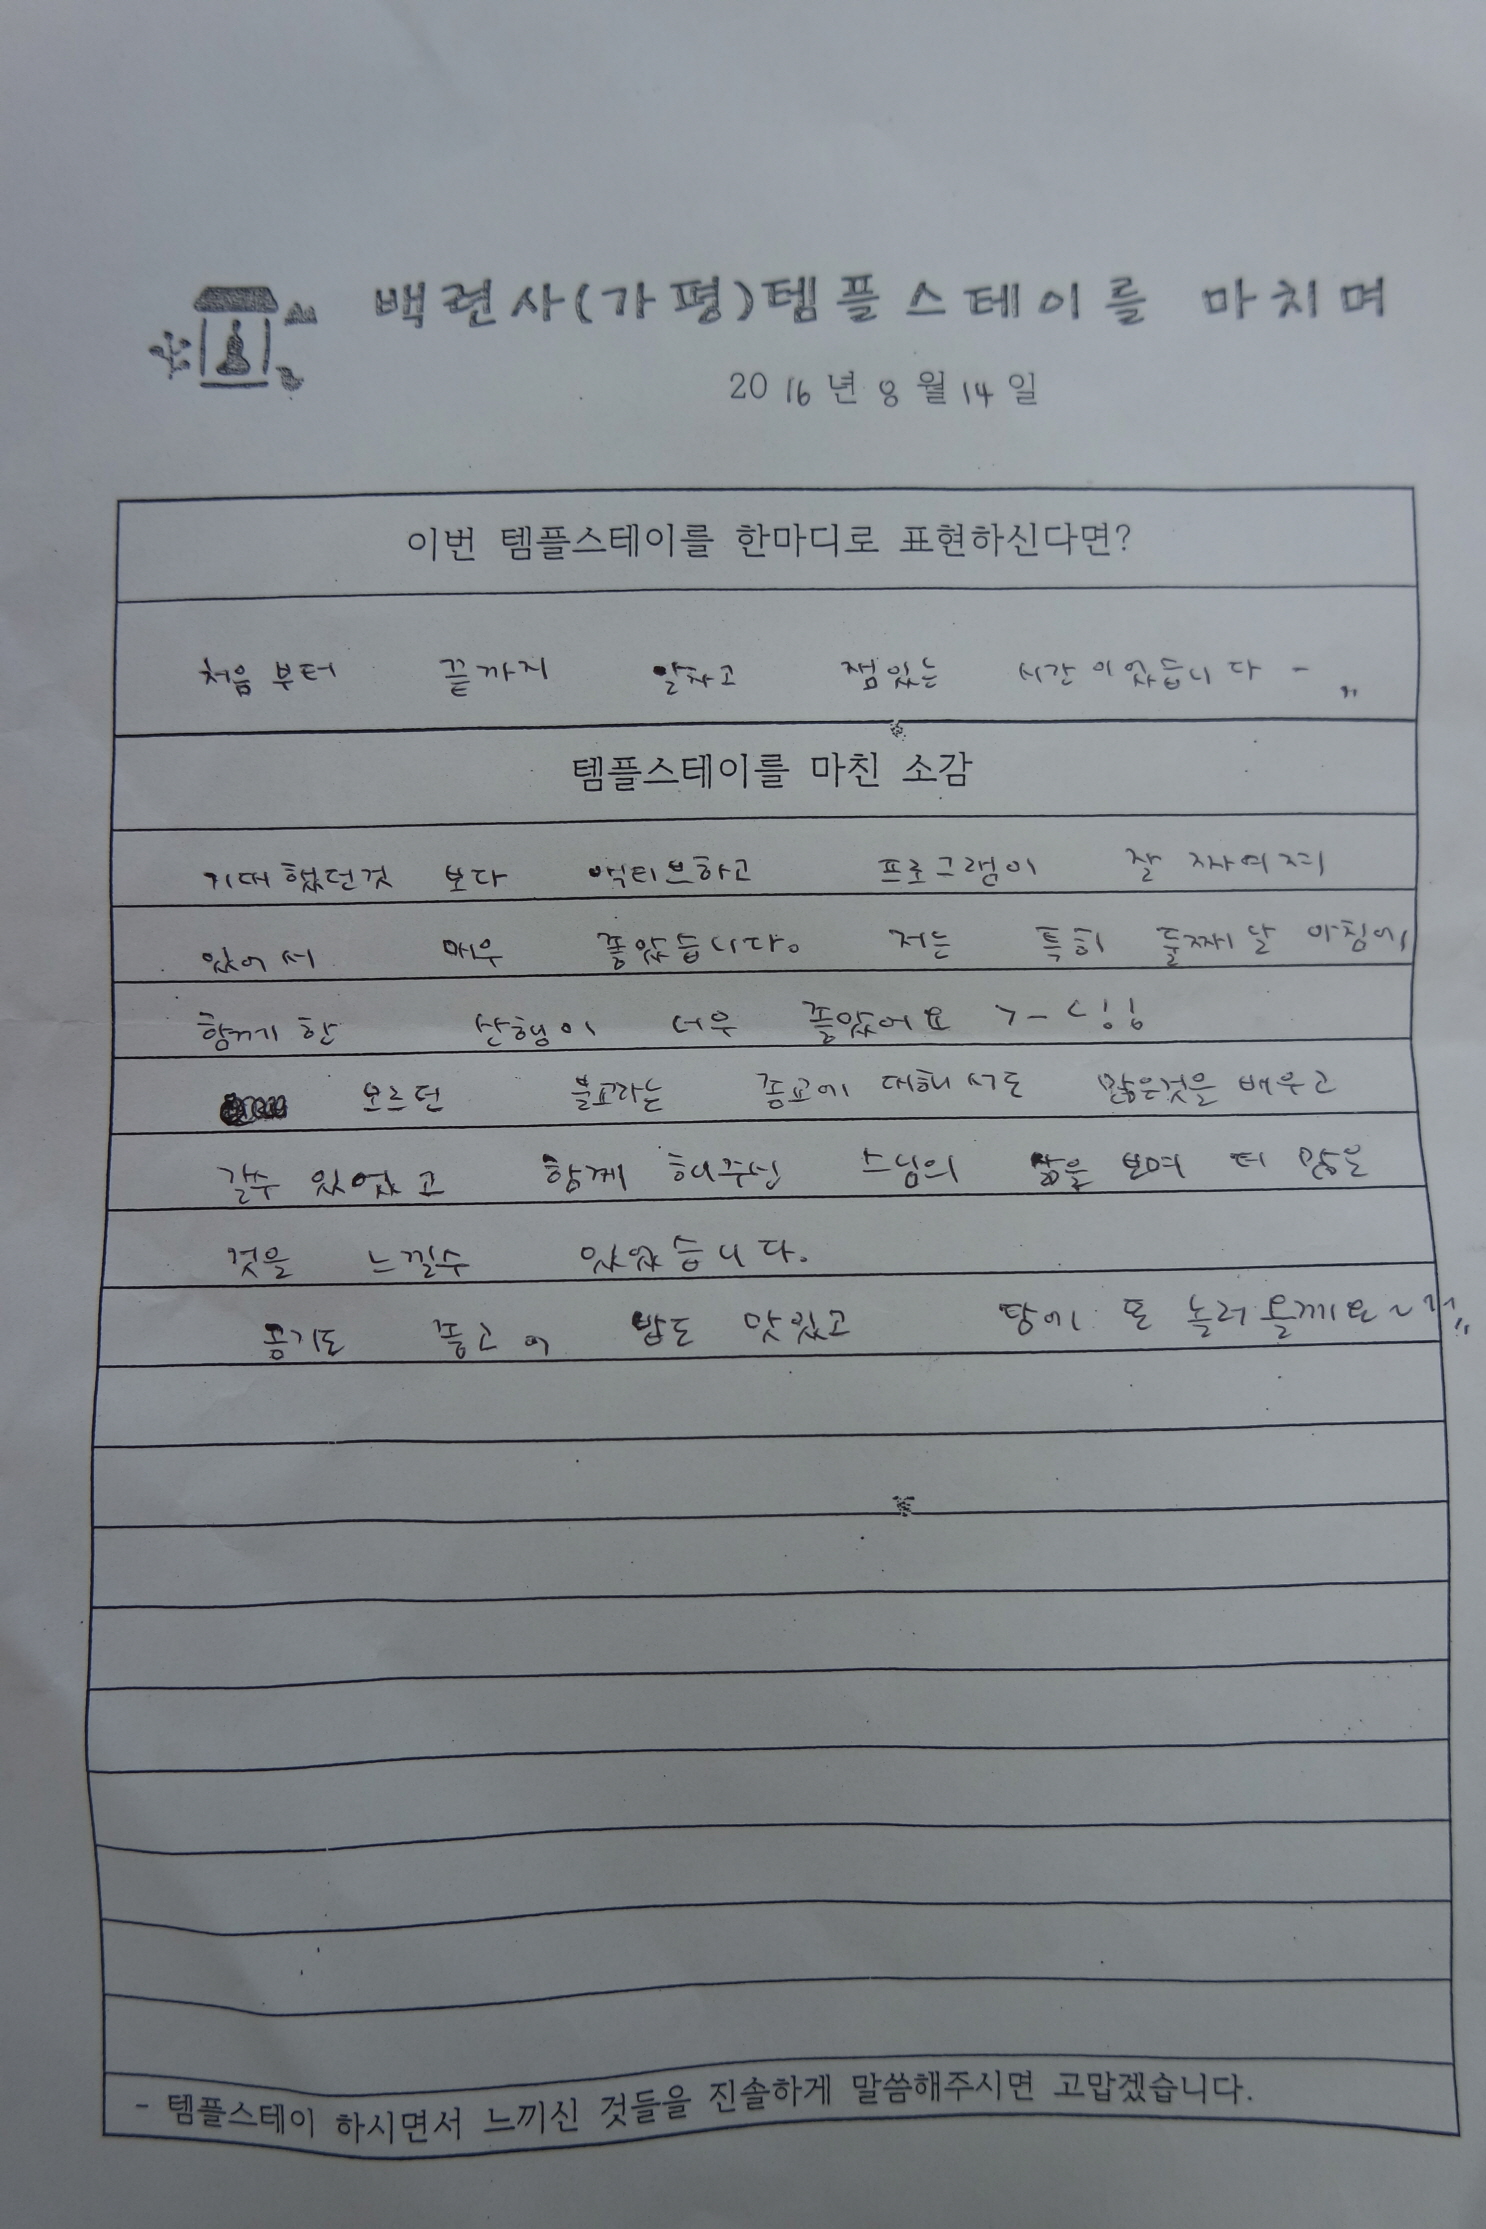 백련사(가평)템플스테이를 마치며
2016년 8월 14일
이번 템플스테이를 한마디로 표현하신다면?
처음부터 끝까지 알차고 잼있는 시간이었습니다 -
템플스테이를 마친 소감
기대했던것 보다 액티브하고 프로그램이 잘 짜여져
있어서 매우 좋았습니다. 저는 특히 둘째날 아침에
함께한 산행이 너무 좋았어요 >-<!!
모르던 불교라는 종교에 대해서도 많은것을 배우고
갈수 있었고 함께 해주신 스님의 삶을 보며 더 많은
것을 느낄수 있었습니다.
공기도 좋고 밥도 맛있고 담에 또 놀러올께요~
- 템플스테이 하시면서 느끼신 것들을 진솔하게 말씀해주시면 고맙겠습니다.